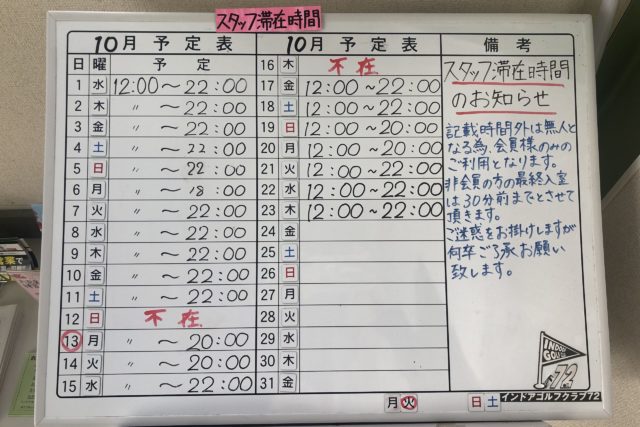 スタッフ滞在時間
10月 予定表
日 曜 予定
1 水 12:00～22:00
2 木 〃 ～22:00
3 金 〃 ～22:00
4 土 〃 ～22:00
5 日 〃 ～22:00
6 月 〃 ～18:00
7 火 〃 ～22:00
8 水 〃 ～22:00
9 木 〃 ～22:00
10 金 〃 ～22:00
11 土 〃 ～22:00
12 日 不在
13 月 〃 ～20:00
14 火 〃 ～20:00
15 水 〃 ～22:00
10月 予定表
16 木 不在
17 金 12:00～22:00
18 土 12:00～22:00
19 日 12:00～20:00
20 月 12:00～20:00
21 火 12:00～22:00
22 水 12:00～22:00
23 木 12:00～22:00
24 金
25 土
26 日
27 月
28 火
29 水
30 木
31 金
備考
スタッフ滞在時間
のお知らせ
記載時間外は無人と
なる為、会員様のみの
ご利用となります。
非会員の方の最終入室
は30分前までとさせて
頂きます。
ご迷惑をお掛けしますが
何卒ご了承お願い
致します。
INDOOR
GOLF
72
月 火 日 土 インドアゴルフクラブ72